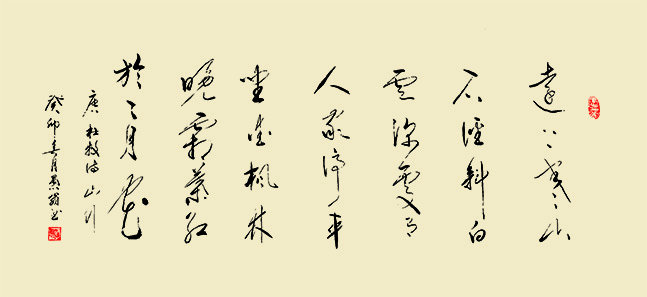 遠上寒山
石徑斜白
雲深處有
人家停車
坐愛楓林
晚霜葉紅
於二月花
唐杜牧诗山行
癸卯春月